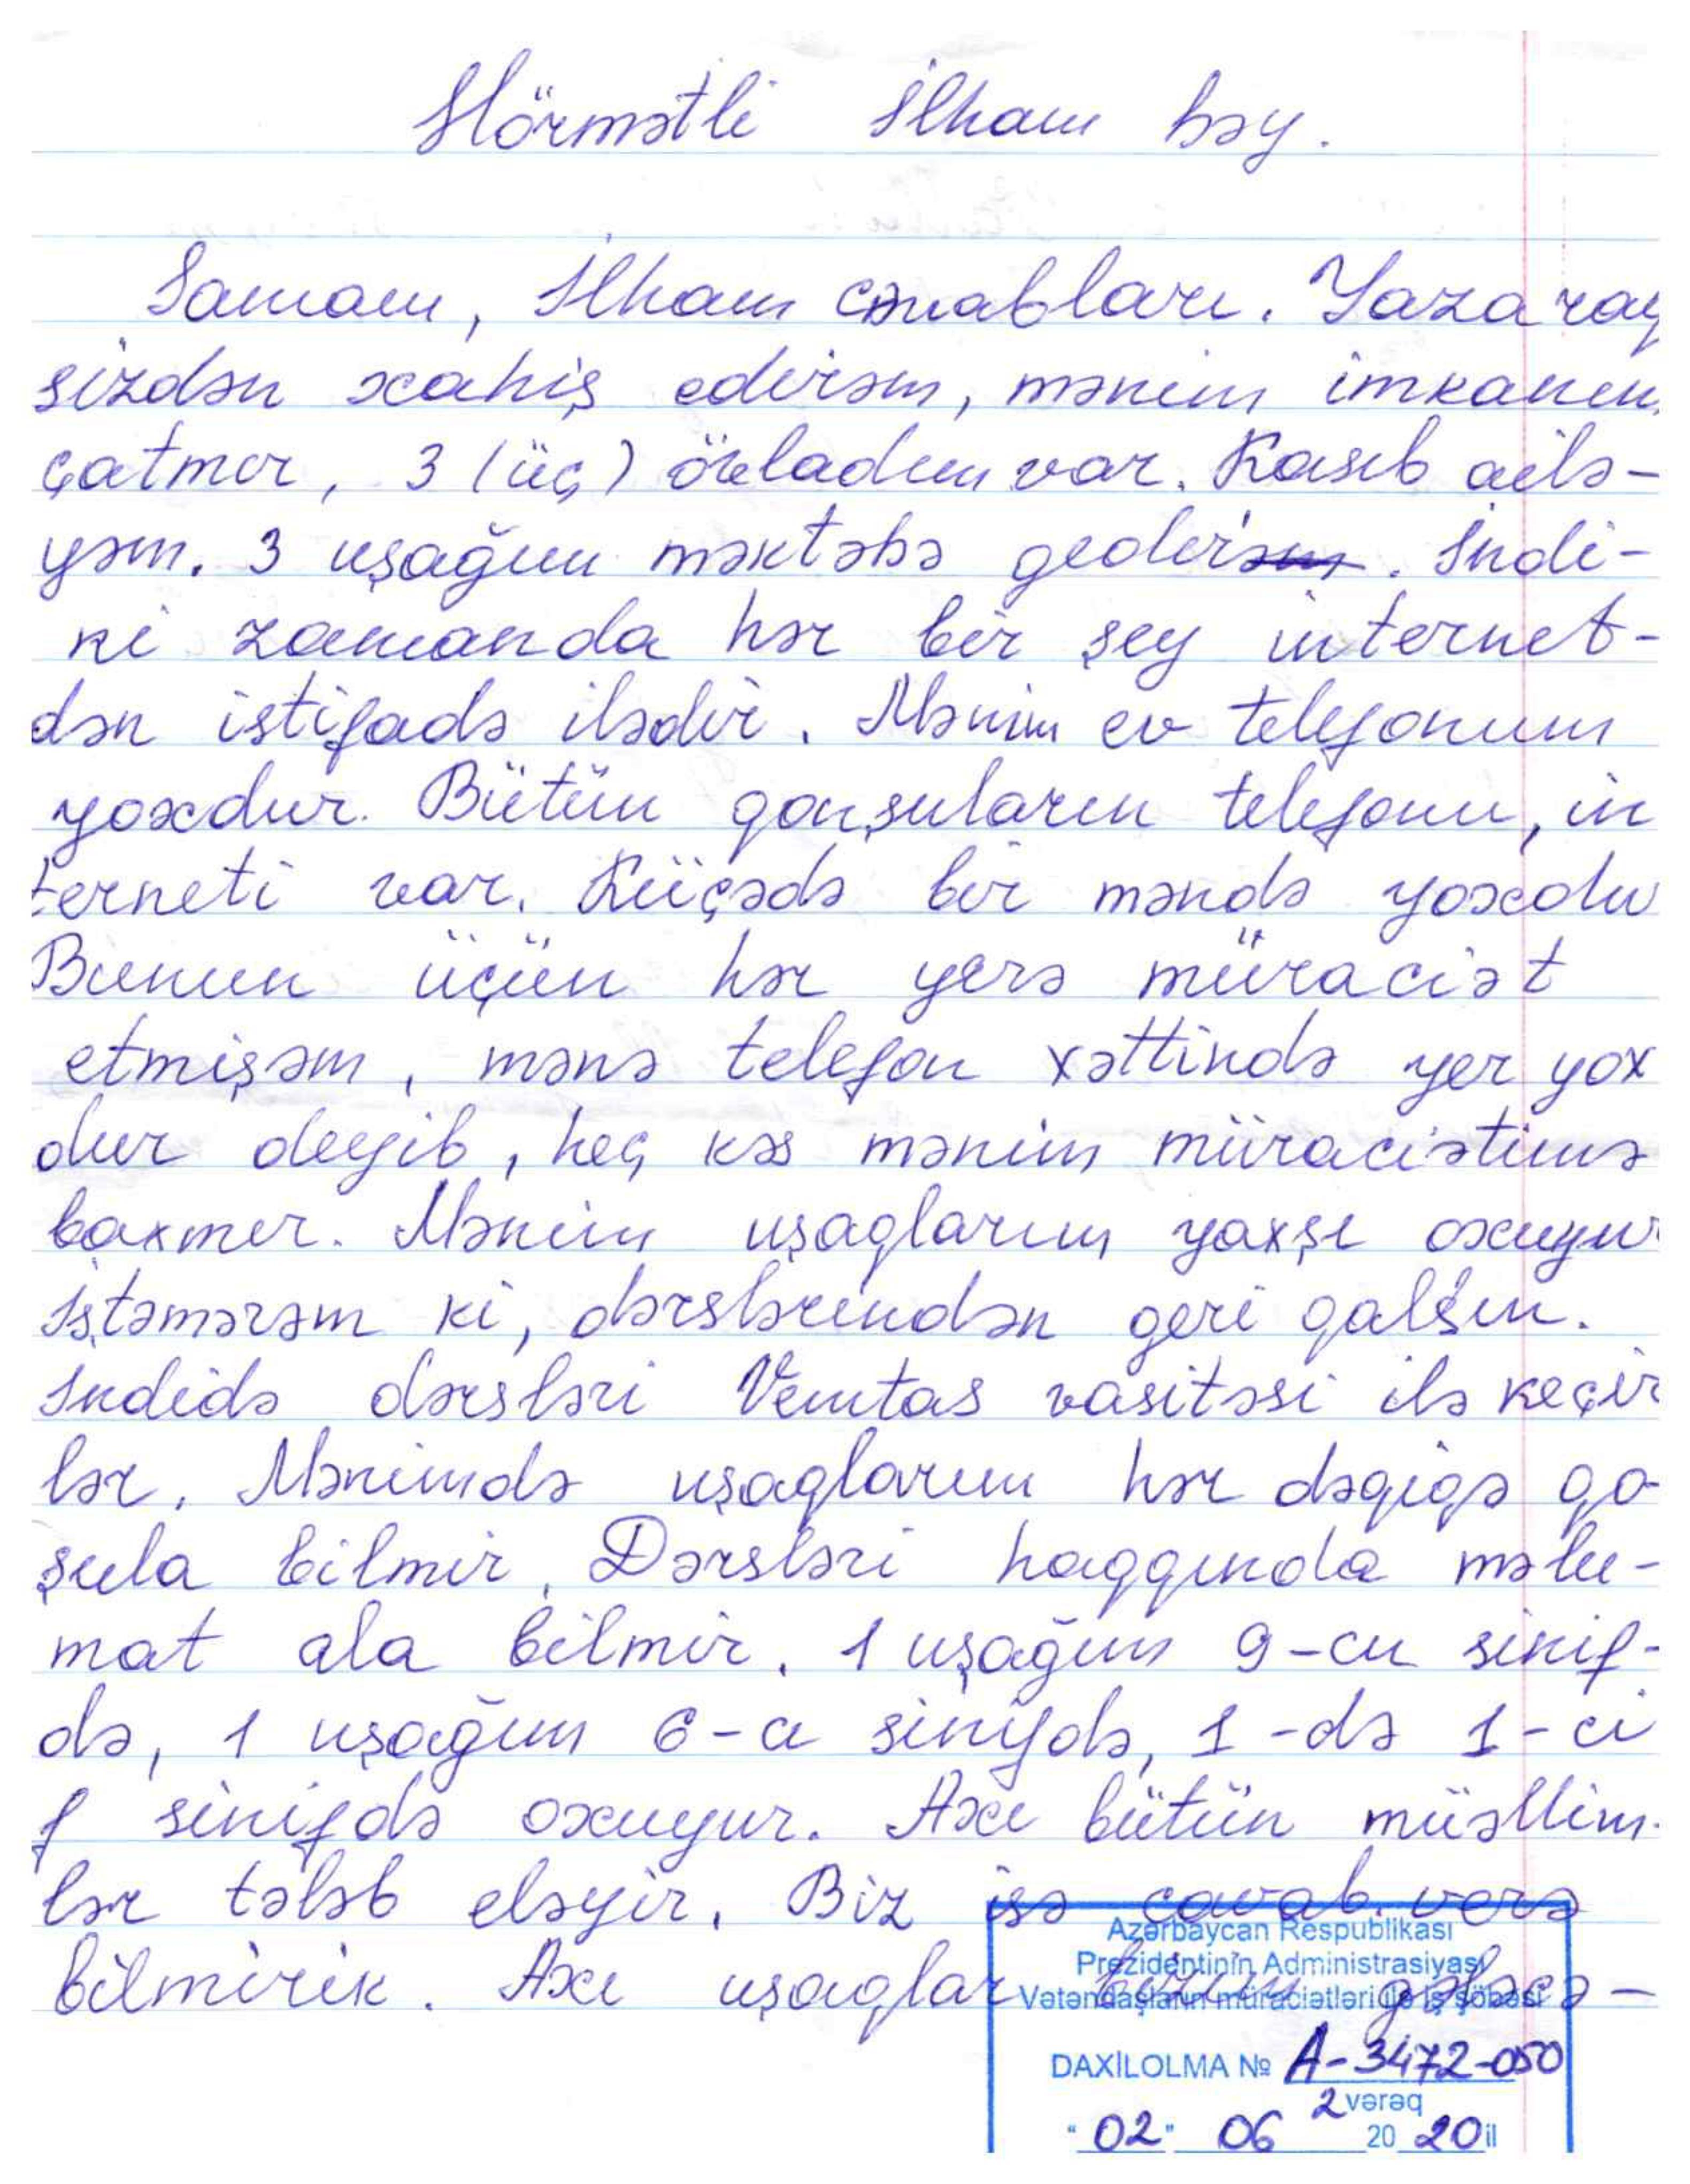 Hörmətli İlham bəy.
Samam, İlham cənabları. Yazaraq
sizdən xahiş edirəm, mənim imkanım
çatmır, 3 (üç) övladım var. Kasıb ailə-
yəm. 3 uşağım məktəbə gedir. İndi-
ki zamanda hər bir şey internet-
dən istifadə ilədir. Mənim ev telefonum
yoxdur. Bütün qonşuların telefonu, in
terneti var. Küçədə bir məndə yoxdu
Bunun üçün hər yerə müraciət
etmişəm, mənə telefon xəttində yer yox
dur deyib, heç kəs mənim müraciətimə
baxmır. Mənim uşaqlarım yaxşı oxuyur
İstəmərəm ki, dərslərindən geri qalsın.
İndidə dərsləri Vemtas vasitəsi ilə keçir
lər. Mənimdə uşaqlarım hər dəqiqə qo
şula bilmir. Dərsləri haqqında məlu-
mat ala bilmir. 1 uşağım 9-cu sinif-
də, 1 uşağım 6-cı sinifdə, 1-də 1-ci
sinifdə oxuyur. Axı bütün müəllim-
lər tələb eləyir. Biz isə cavab verə
bilmirik. Axı uşaqlar bizim gələcə-
Azərbaycan Respublikası
Prezidentinin Administrasiyası
Vətəndaşların müraciətləri ilə iş şöbəsi
DAXİLOLMA № A-3472-050
2 vərəq
"02" 06 2020 il